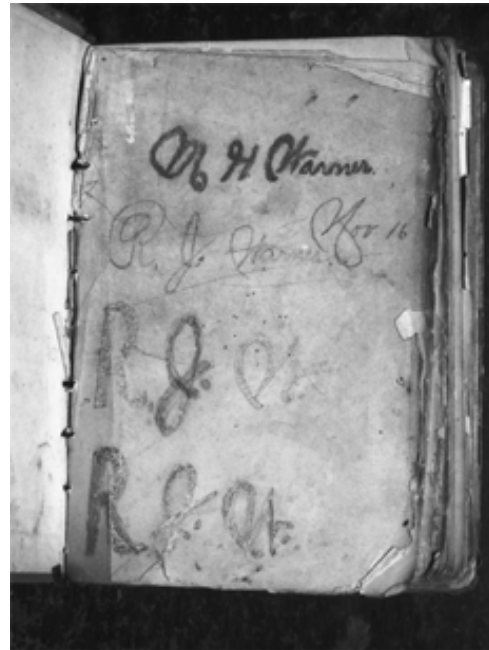 M H Warner.
R. J. Warner. Nov 16
R. J. W.
R. J. W.